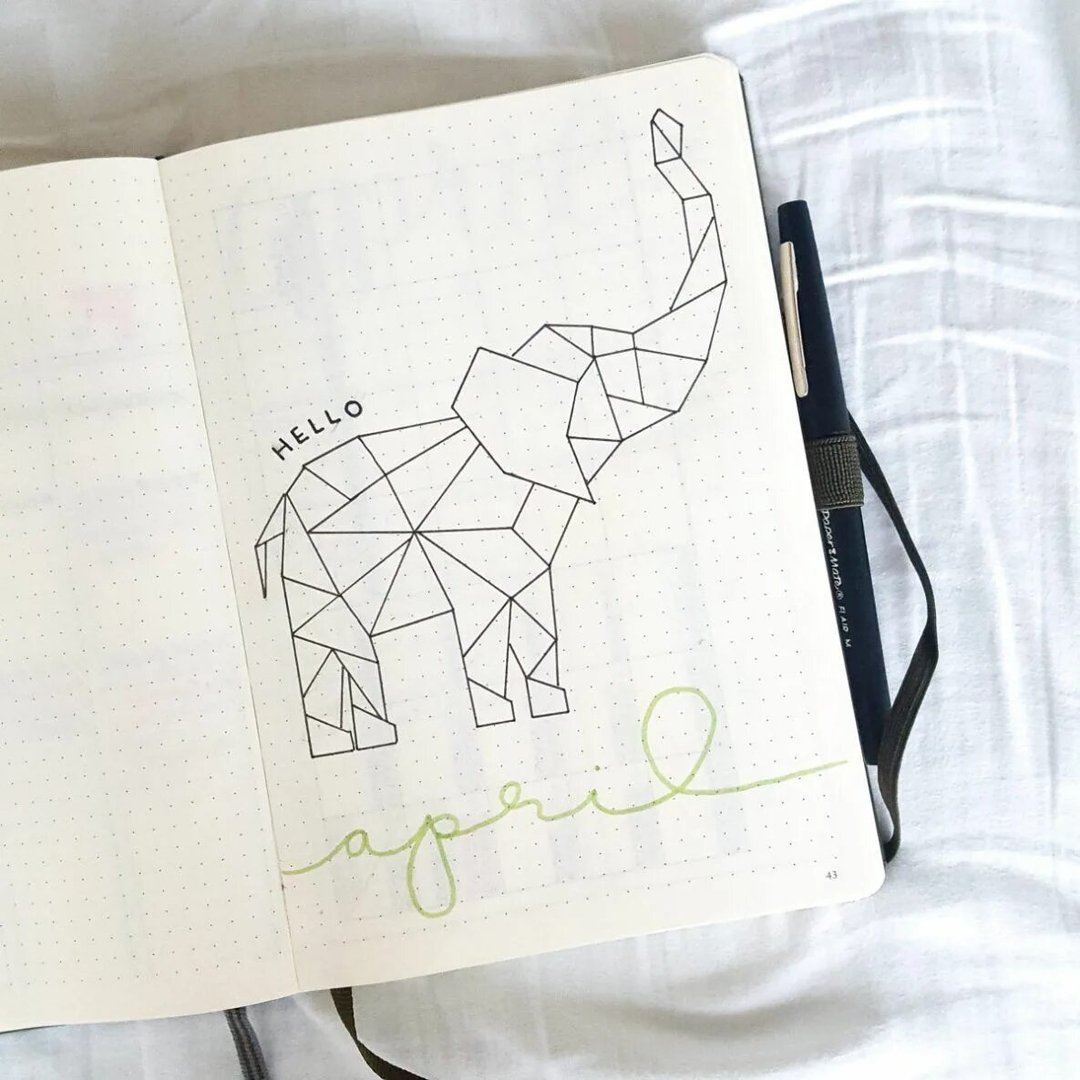 HELLO
april
43
paper mate® FLAIR M